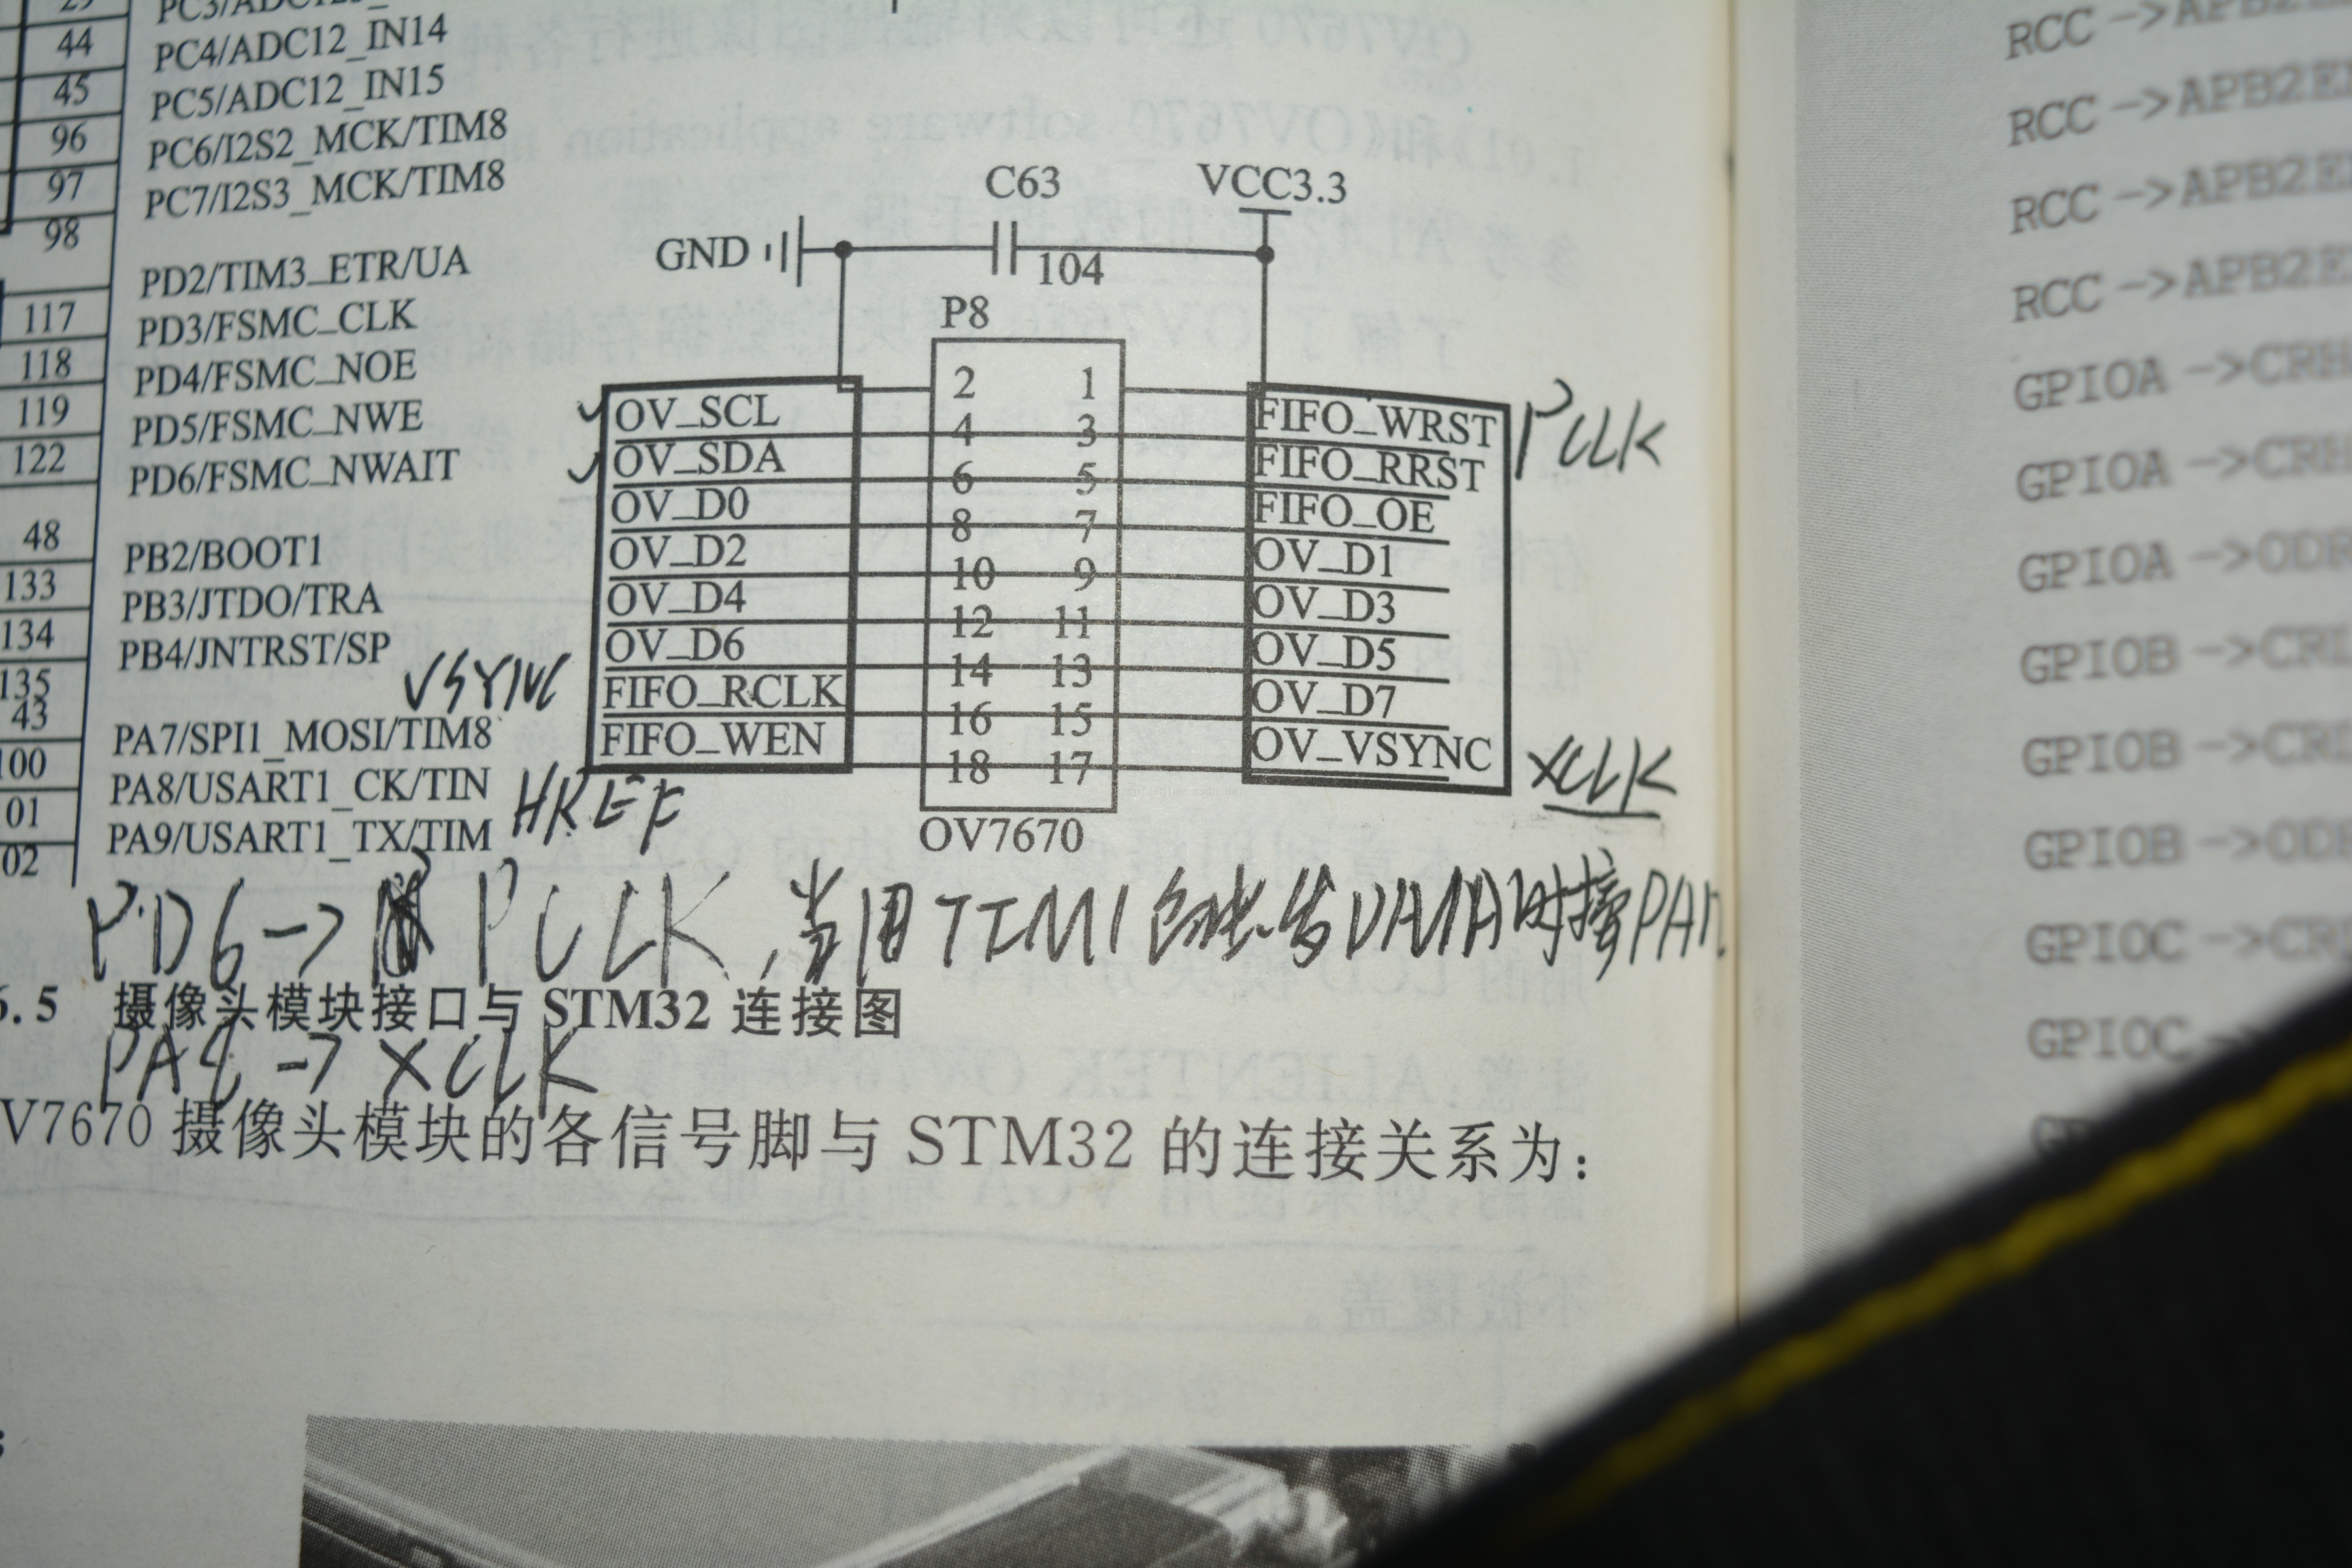 44
PC4/ADC12_IN14
45
PC5/ADC12_IN15
96
PC6/I2S2_MCK/TIM8
97
PC7/I2S3_MCK/TIM8
98
PD2/TIM3_ETR/UA
117
PD3/FSMC_CLK
118
PD4/FSMC_NOE
119
PD5/FSMC_NWE
122
PD6/FSMC_NWAIT
48
PB2/BOOT1
133
PB3/JTDO/TRA
134
PB4/JNTRST/SP
135
43
PA7/SPI1_MOSI/TIM8
100
PA8/USART1_CK/TIN
01
PA9/USART1_TX/TIM
02
C63
VCC3.3
GND
104
P8
2 1
OV_SCL 4 3 FIFO_WRST PCLK
OV_SDA 6 5 FIFO_RRST
OV_D0 8 7 FIFO_OE
OV_D2 10 9 OV_D1
OV_D4 12 11 OV_D3
OV_D6 14 13 OV_D5
VSYNC FIFO_RCLK 16 15 OV_D7
FIFO_WEN 18 17 OV_VSYNC XCLK
HREF
OV7670
PD6 -> PCLK, 当用TIM1 DMA时接
6.5 摄像头模块接口与 STM32 连接图
-> XCLK
V7670 摄像头模块的各信号脚与 STM32 的连接关系为:
RCC ->APB2E
RCC ->APB2E
RCC ->APB2E
RCC ->APB2E
GPIOA ->CRH
GPIOA ->CRH
GPIOA ->ODR
GPIOB ->CRL
GPIOB ->CRL
GPIOB ->OD
GPIOC ->CR
GPIOC ->